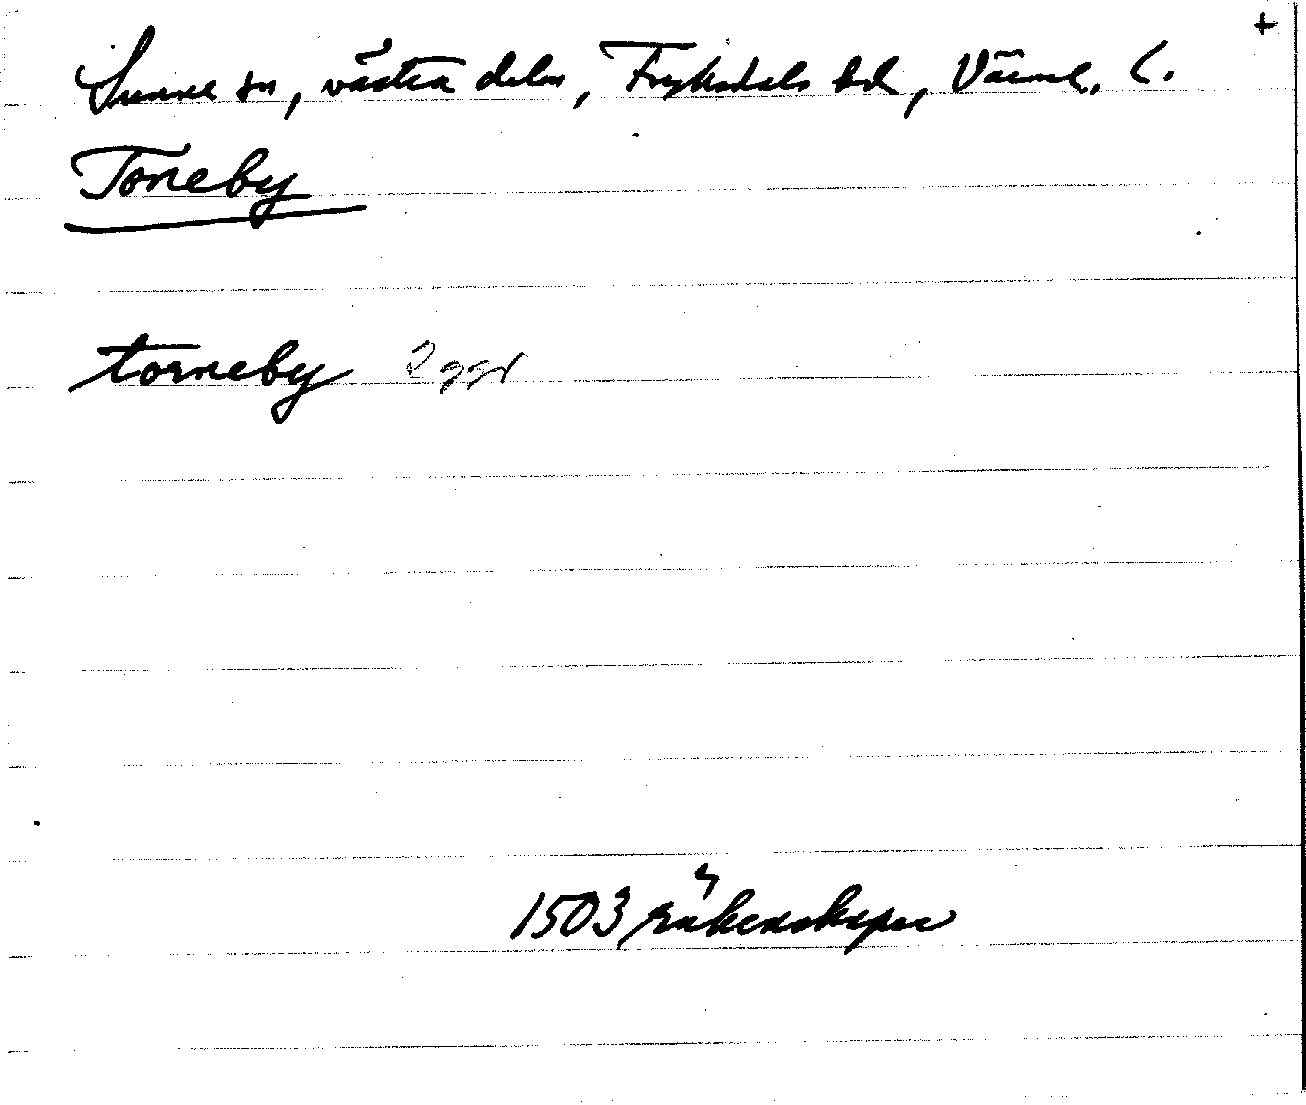 +
Sunne sn, västra delen, Fryksdals hd, Värml. l.
Toneby
torneby 2 ggr
1503 räkenskaper